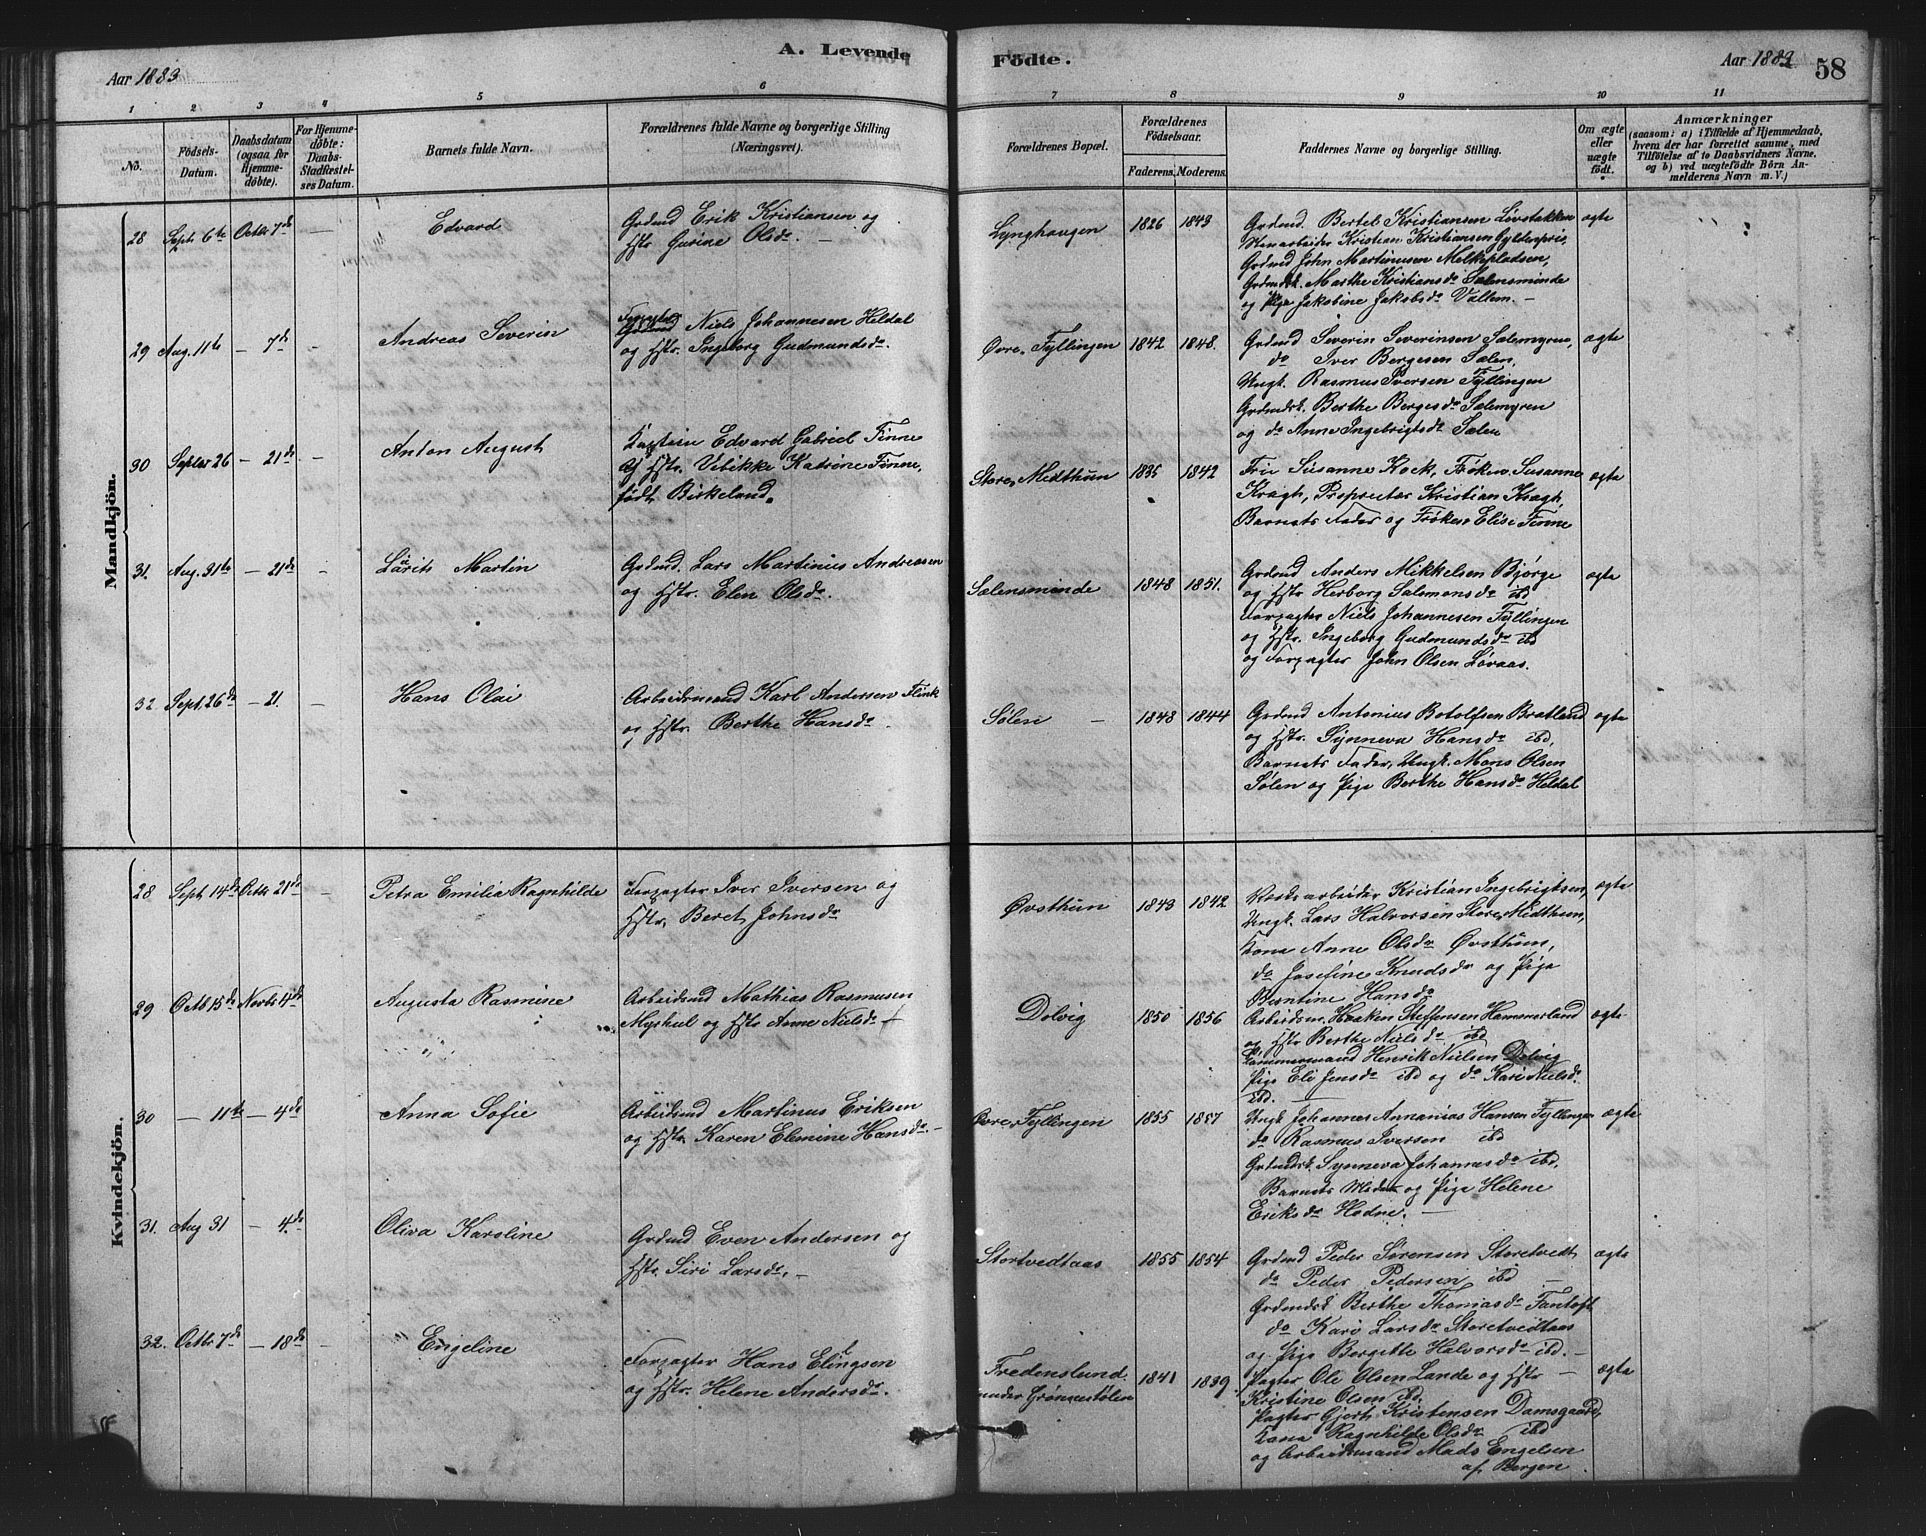 Aar 1883
A. Levende
Födte.
Aar 1883
58
1 2 3 4 5 6 7 8 9 10 11
No.
Födsels-
Datum.
Daabsdatum
(ogsaa for
Hjemme-
döbte).
For Hjemme-
döbte:
Daabs-
Stadfæstel-
ses Datum.
Barnets fulde Navn.
Forældrenes fulde Navne og borgerlige Stilling
(Næringsvei).
Forældrenes Bopæl.
Forældrenes
Födselsaar.
Faderens. Moderens.
Faddernes Navne og borgerlige Stilling.
Om ægte
eller
uægte
födt.
Anmærkninger
(saasom: a) i Tilfælde af Hjemmedaab,
hvem der har forrettet samme, med
Tilföielse af to Daabsvidners Navne,
og b) ved uægtefödte Börn An-
melderens Navn m. V.)
Mandkjön.
28 Sept 6te Octbr 7de — Edvard
Grdmd Erik Kristiansen og
Hstr Gurine Olsdr. —
Lynghaugen 1826 1843
Grdmd. Bertel Kristiansen Lövstakken
Kristian Kristiansen Gyldenpris,
Grdmd John Martinusen Melkepladsen,
Grdmdsk. Marthe Kristiansdr Sælensminde
og Pige Jakobine Jakobsdr Vallem. —
ægte
29 Aug. 11te — 7de — Andreas Severin
Forpagter
Grdmd Niels Johannesen Heldal
og Hstr. Ingeborg Gudmundsdr.
Øvre, Fyllingen 1842 1848.
Grdmd Severin Severinsen Sælemyren,
do Iver Bergesen Sælen,
Ungk. Rasmus Iversen Fyllingen
Grdmdsk. Berthe Bergesdr Sælemyren
og do Anne Ingebrigtsdr Sælen
ægte
30 Septbr 26 — 21de — Anton August
Kaptein Edvard Gabriel Finne
og Hstr. Vibikke Katrine Finne,
födt Birkeland.
Store, Midthun 1835 1842
Fru Susanne Kock, Frøken Susanne
Kragh, Proprietær Kristian Kragh,
Barnets Fader og Frøken Elise Finne
ægte
31. Aug. 31te — 21de — Lauritz Martin
Grdmd. Lars Martinius Andreasen
og Hstr. Elen Olsdr.
Sælensminde 1848 1851.
Grdmd Anders Mikkelsen Bjørge
og Hstr Herborg Salomonsdr ibd
Forpagter Niels Johannesen Fyllingen
og Hstr. Ingeborg Gudmundsdr ibd
og Forpagter John Olsen Løvaas.
ægte
32 Sept. 26de — 21. — Hans Olai
Arbeidsmand Karl Andersen Flink
og Hstr. Berthe Hansdr.
Sølen — 1848 1844
Grdmd Antonius Botolfsen Bratland
og Hstr. Synneva Hansdr ibd,
Barnets Fader, Ungk. Mons Olsen
Sølen og Pige Berthe Hansdr Heldal
ægte
Kvindekjön.
28 Sept 14de Octbr 21de — Petra Emilia Ragnhilde
Forpagter Iver Iversen og
Hstr. Beret Johnsdr
Øvsthun 1843 1842
Kristian Ingebrigtsen,
Ungk. Lars Halvorsen Store, Midthun,
Kona Anne Olsdr Øvsthun,
do Josefine Knudsdr og Pige
Berntine Hansdr
ægte
29 Octb 15de Novbr 4de Augusta Rasmine
Arbeidsmd Mathias Rasmusen
og Hstr Anne Nielsdr —
Dolvig 1850 1856
Arbeidsm. Haaken Steffensen Hammerland
og Hstr Berthe Nielsdr ibd
Tømmermand Henrik Nielsen Dolvig
Pige Eli Jensdr ibd og do Kari Nielsdr
ibd. —
ægte
30 — 11te — 4de Anna Sofie
Arbeidsmd Martinus Eriksen
og Hstr Karen Elmine Hansdr. —
Øvre, Fyllingen 1855 1857
Ungk Johannes Annanias Hansen Fyllingen
do Rasmus Iversen ibd
Grdmdsk. Synneva Johannesdr ibd,
Barnets Moder og Pige Helene
Eriksdr Hodne. —
ægte
31. Aug 31 — 4de Oliva Karoline
Grdmd Even Andersen og
Hstr. Siri Larsdr. —
Stortvedtaas 1855 1854
Grdmd Peder Sørensen Storetvedt
do Peder Pedersen ibd —
Grdmdsk Berthe Thomasdr Fantoft
do Kari Larsdr Storetvedtaas
og Pige Bergitte Halvorsdr ibd. —
ægte
32. Octbr 7de — 18de — Engeline
Forpagter Hans Elingsen
og Hstr. Helene Andersdr.
Fredenslund
under Grönnestølen 1841 1839
Pagter Ole Olsen Lande og Hstr —
Kristine Olsen ibd.
Pagter Gjert Kristensen Damsgaard,
Kona Ragnhilde Olsdr ibd
og Arbeidsmand Mads Engelsen
af Bergen
ægte